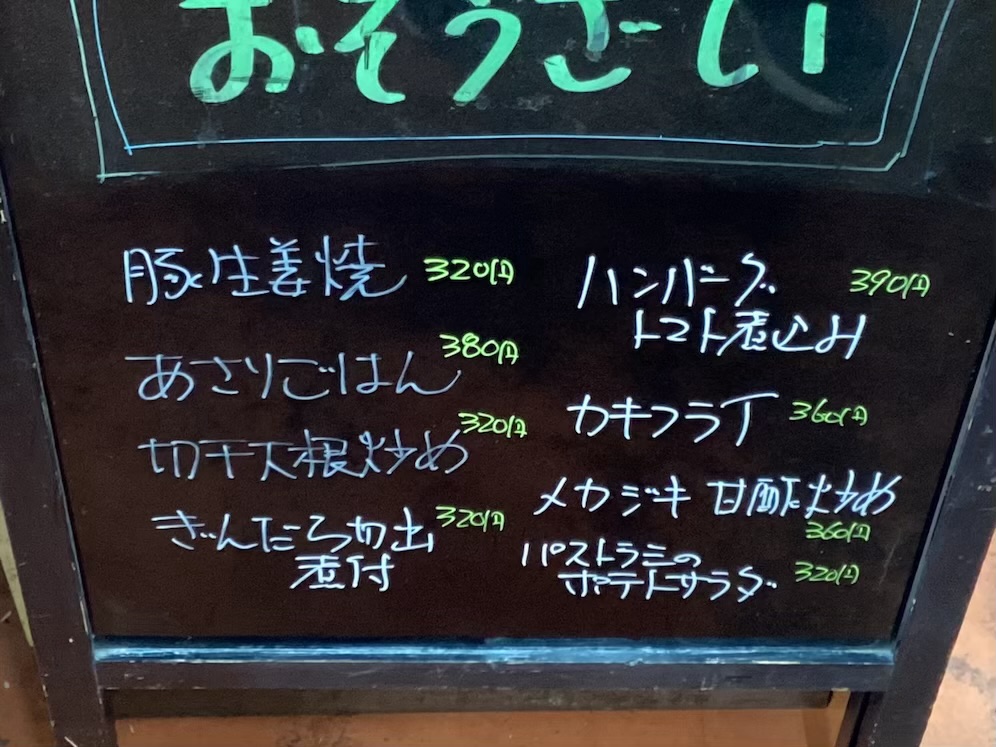 おそうざい
豚生姜焼 320円
あさりごはん 380円
切干大根炒め 320円
ぎんだら切出 320円
煮付
ハンバーグ 390円
トマト煮込み
カキフライ 360円
メカジキ 甘酢炒め
360円
パストラミの
ポテトサラダ 320円